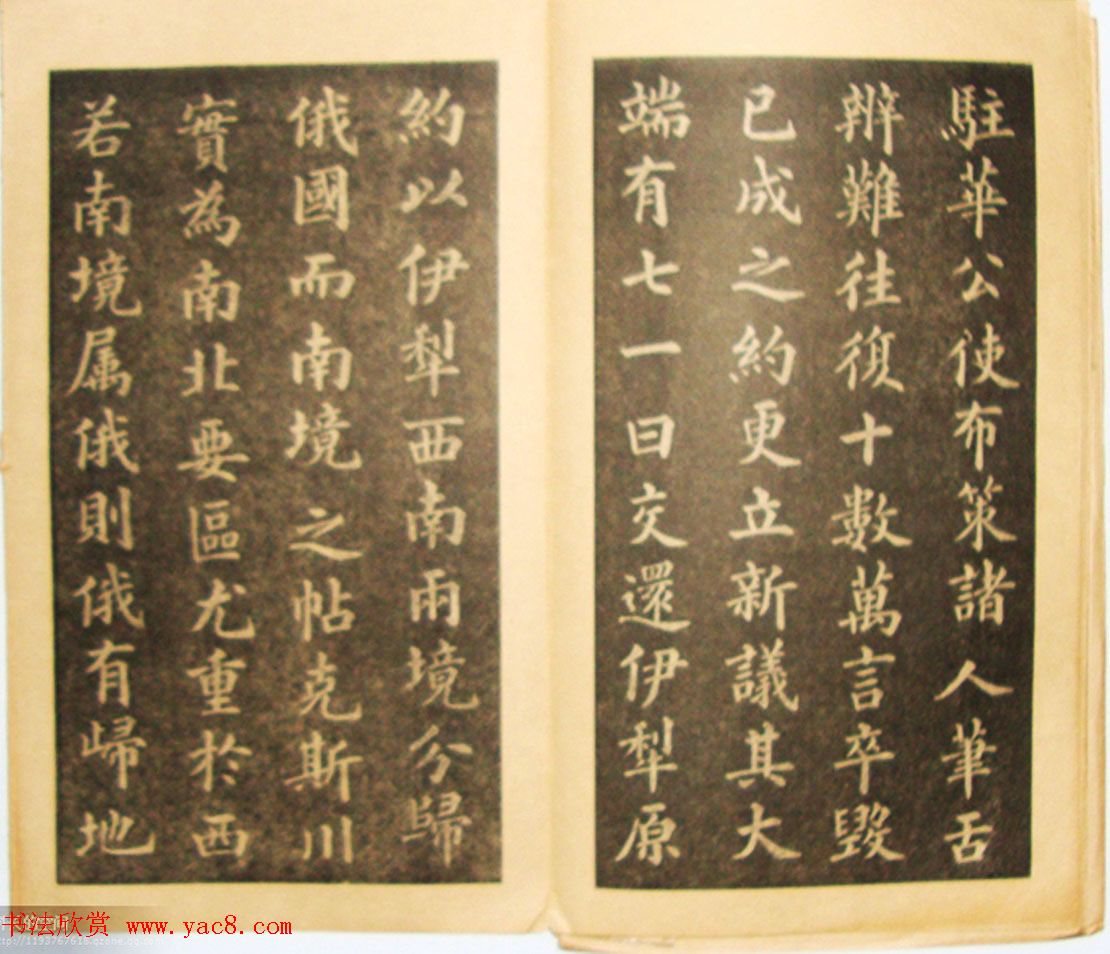 駐華公使布策諸人筆舌
辨難往復十數萬言卒毀
已成之約更立新議其大
端有七一曰交還伊犁原
約以伊犁西南兩境分歸
俄國而南境之帖克斯川
實為南北要區尤重於西
若南境属俄則俄有歸地
书法欣赏 www.yac8.com
http://1193767618.qzone.qq.com